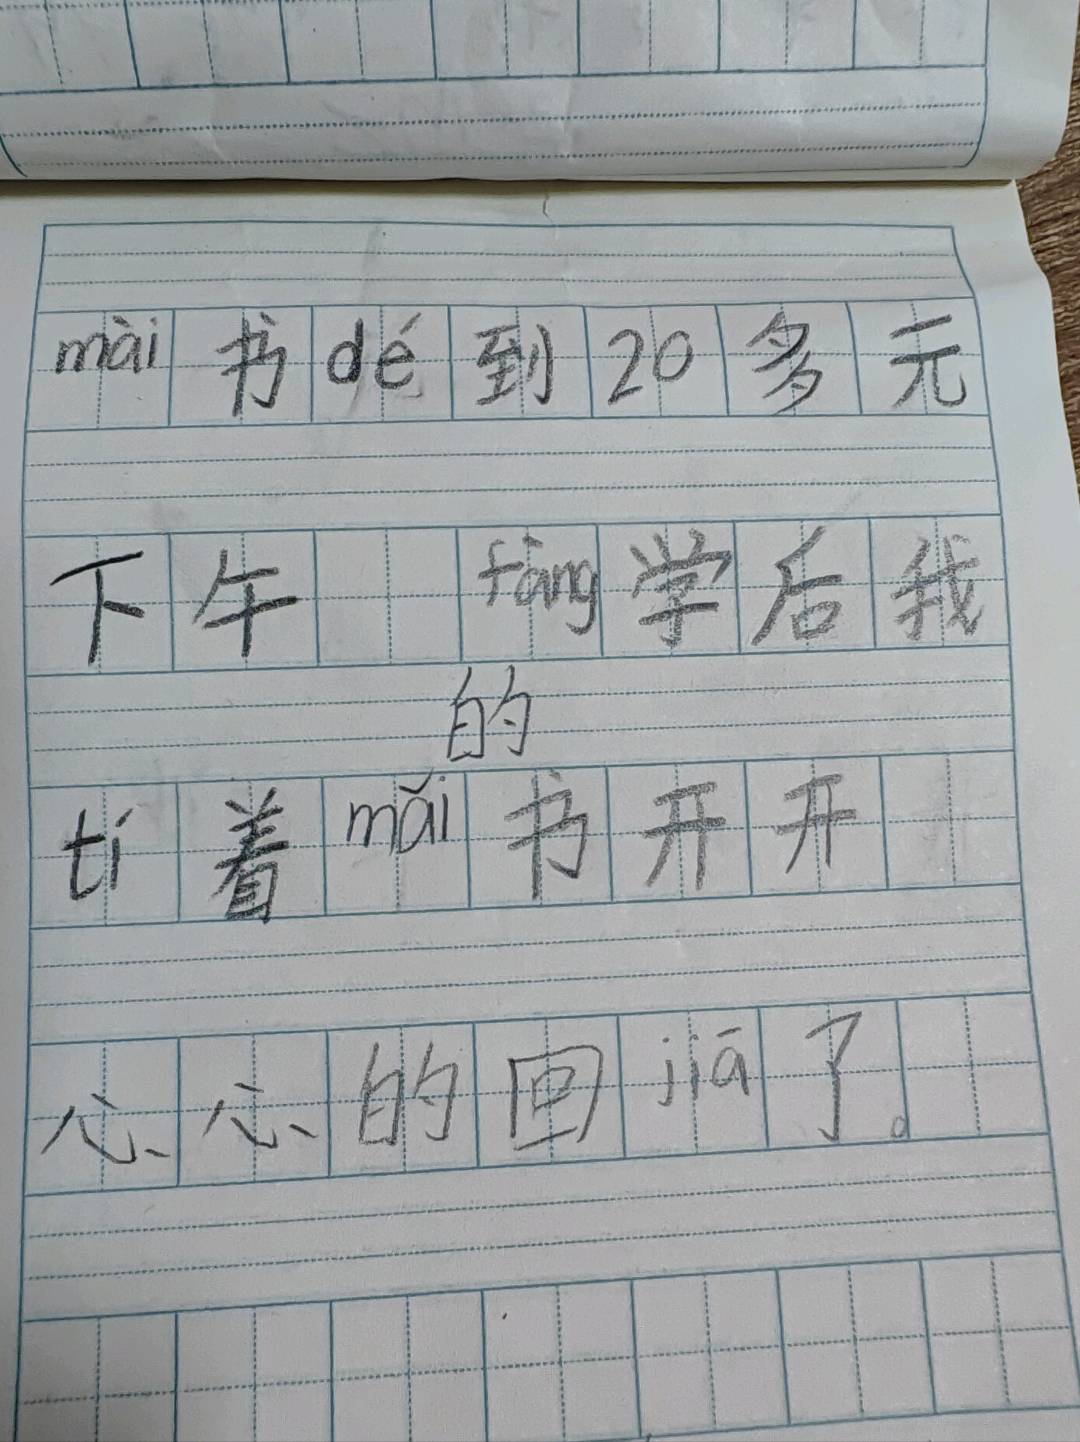 mài书dé到20多元
下午 fàng学后我
的
tí着mǎi书开开
心心的回jiā了。